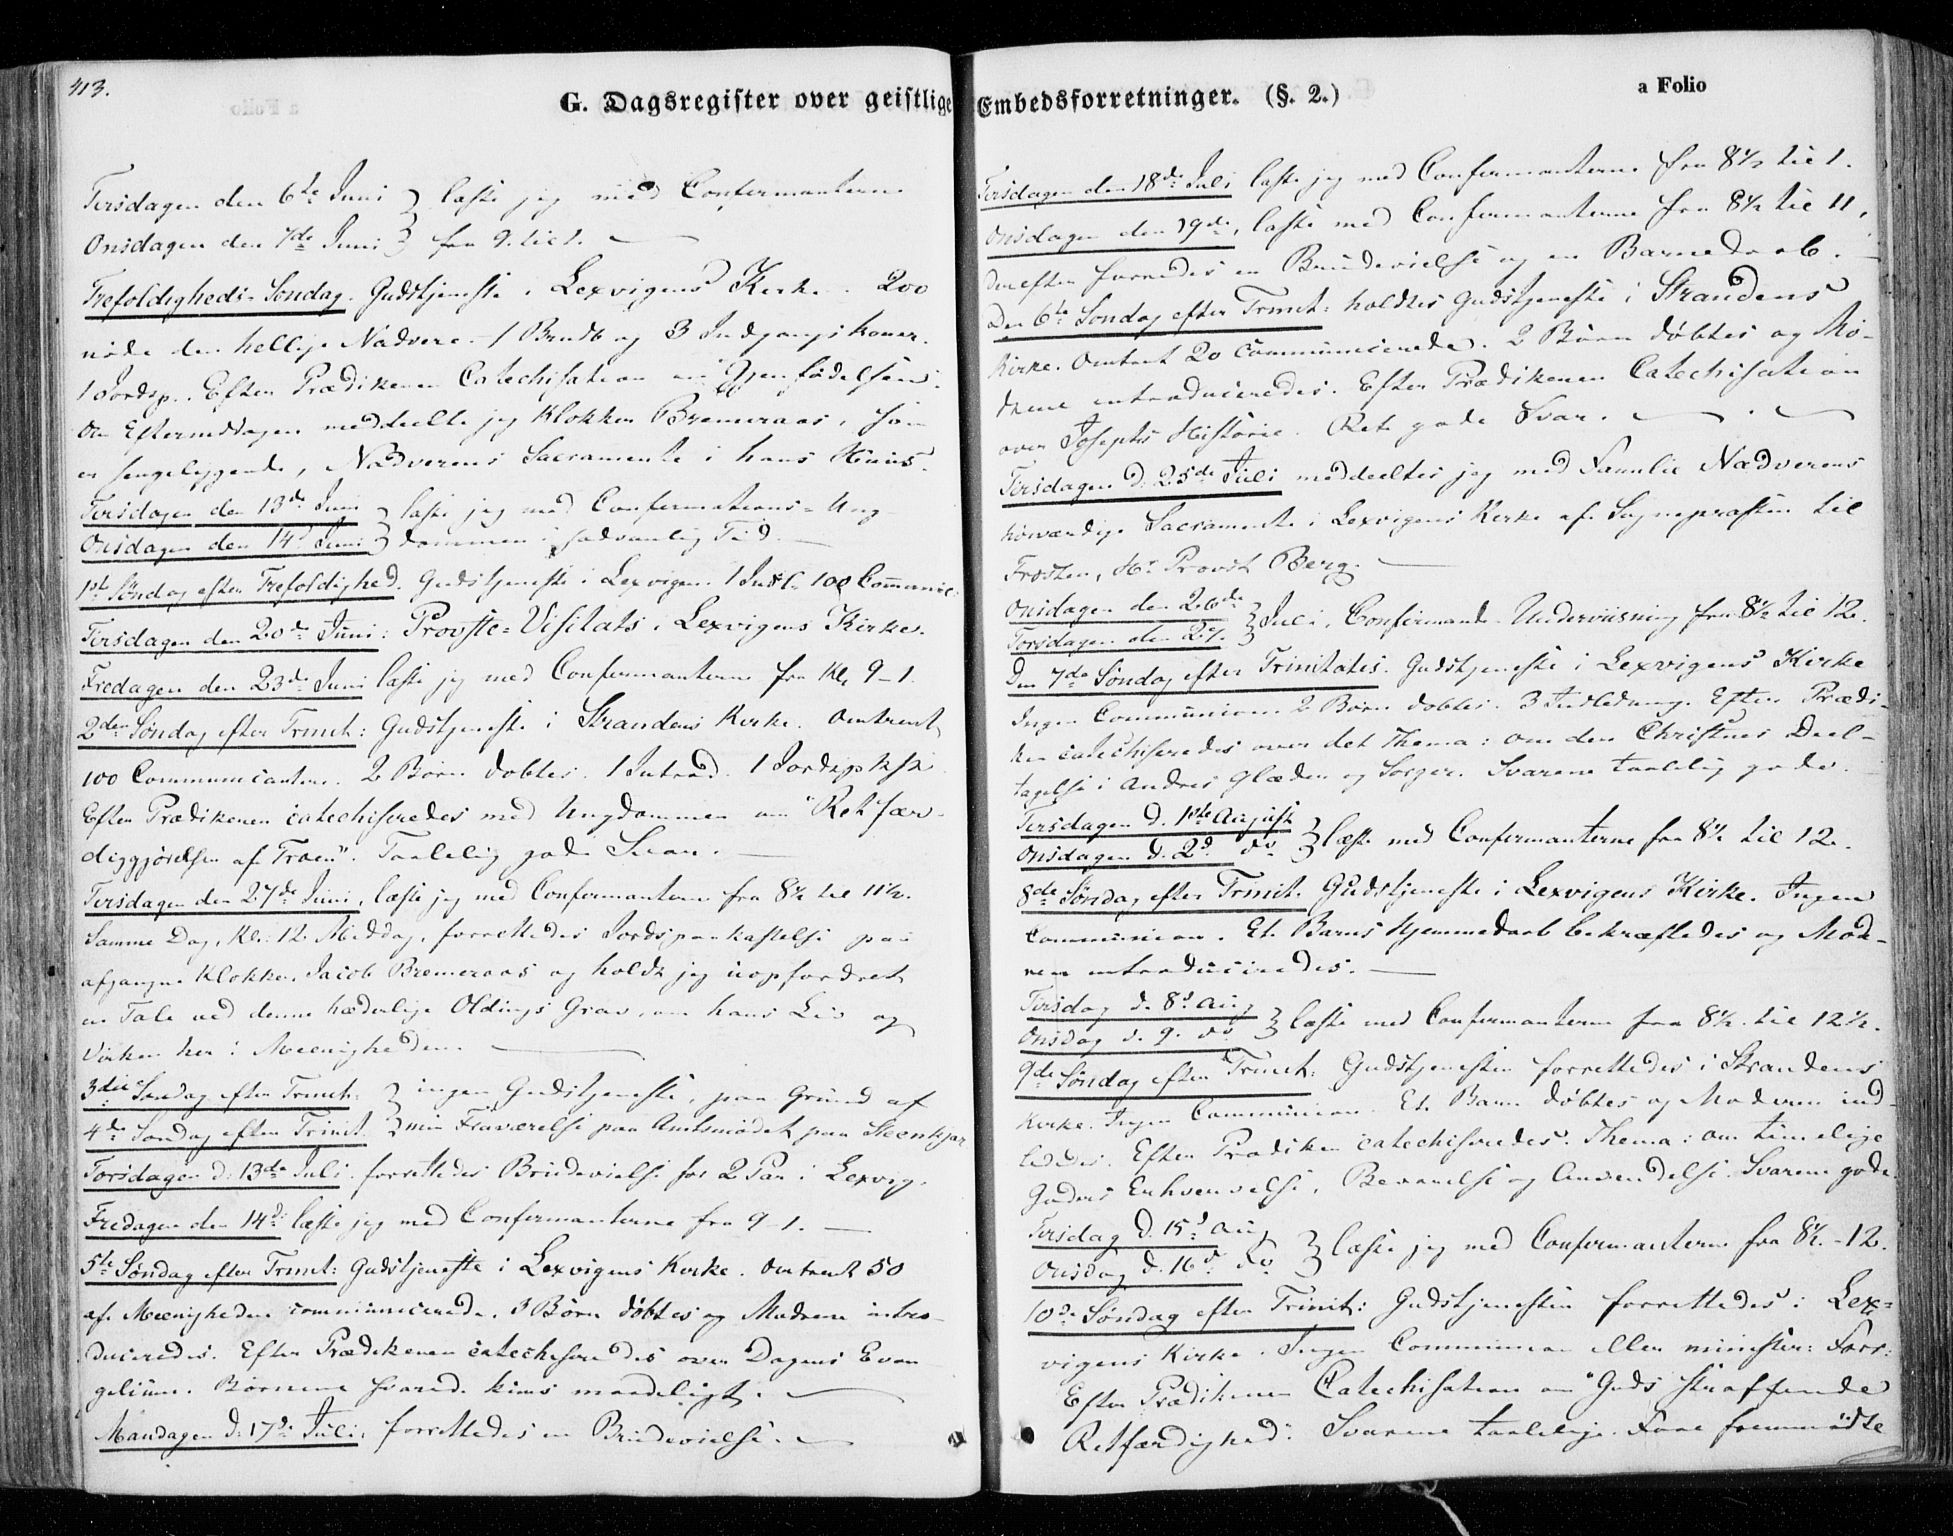 413.
G. Dagsregister over geistlige Embedsforretninger. (§. 2.)
a Folio
Tirsdagen den 6te Juni } læste jeg med Confirmanterne
Onsdagen den 7de Juni } fra 9 til 1.
Trefoldigheds-Søndag. Gudstjeneste i Lexvigens Kirke. 200
nøde den hellige Nadvere. 1 Brudb og 3 Indgangskoner.
1 Jordsp.. Efter Prædikenen Catechisation om Gjenfødelsen.
Om Eftermiddagen meddeelte jeg Klokker Bremeraas, som
er sengeliggende, Nadverens Sacramente i hans Huus.
Tirsdagen den 13de Juni } læste jeg med Confirmations-Ung-
Onsdagen den 14d Juni } dommen i sædvanlig Tid.
1ste Søndag efter Trefoldighed. Gudstjeneste i Lexvigen. 1 Indl. 100 Communic:
Tirsdagen den 20de Juni: Provste-Visitats i Lexvigens Kirke.
Fredagen den 23de Juni læste jeg med Confirmanterne fra Kl. 9-1.
2den Søndag efter Trinit: Gudstjeneste i Strandens Kirke. Omtrent
100 Communicanter. 2 Børn døbtes. 1 Introd. 1 Jordspkst.
Efter Prædikenen catechiseredes med Ungdommen om "Retfær-
diggjørelsen af Troen". Taalelig gode Svar.
Tirsdagen den 27de Juni, læste jeg med Confirmanterne fra 8½ til 11½.
Samme Dag, Kl. 12 Middag, forrettedes Jordspaakastelse paa
afgangne Klokker Jacob Bremeraas og holdt jeg uopfordret
en Tale ved denne hæderlige Oldings Grav, om hans Liv og
Virken her i Meenigheden.
3die Søndag efter Trinit: } ingen Gudstjeneste, paa Grund af
4de Søndag efter Trinit } min Fraværelse paa Amtsmødet paa Steenkjær
Torsdagen d. 13de Juli forrettedes Brudevielse for 2 Par i Lexvig.
Fredagen den 14d: læste jeg med Confirmanterne fra 9-1.
5te Søndag efter Trinit: Gudstjeneste i Lexvigens Kirke. Omtrent 50
af Meenigheden communicerede. 3 Børn døbtes og Mødrene intro-
duceredes. Efter Prædikenen catechiseredes over Dagens Evan-
gelium. Børnene svarede kuns maadeligt.
Mandagen d: 17de Juli, forrettedes en Brudevielse.
Tirsdagen den 18de Juli læste jeg med Confirmanterne fra 8½ til 1.
Onsdagen den 19de, læste med Confirmanterne fra 8½ til 11,
derefter forrededes en Brudevielse og en Barnedaab.
Den 6te Søndag efter Trinit: holdtes Gudstjeneste i Strandens
Kirke. Omtrent 20 communicerede. 2 Børn døbtes og Mø-
drene introduceredes. Efter Prædikenen Catechisation
over Josephs Historie. Ret gode Svar.
Tirsdagen d. 25de Juli meddeeltes jeg med Familie Nadverens
høiværdige Sacramente i Lexvigens Kirke af Sognepræsten til
Frosten, Hr Provst Berg.
Onsdagen den 26de } Juli, Confirmand-Underviisning fra 8½ til 12.
Torsdagen den 27. }
Den 7de Søndag efter Trinitatis. Gudstjeneste i Lexvigens Kirke
Ingen Communion 2 Børn døbtes. 3 Indledning. Efter Prædi-
ken catechiseredes over det Thema: om den Christnes Deel-
tagelse i Andres Glæder og Sorger. Svarene taalelig gode.
Tirsdagen d. 1ste August } læste med Confirmanterne fra 8½ til 12.
Onsdagen d. 2d do }
8de Søndag efter Trinit. Gudstjeneste i Lexvigens Kirke. Ingen
Communion. Et Barns Hjemmedaab bekræftedes og Mod-
ren introduceredes.
Tirsdag d. 8d Aug } læste med Confirmanterne fra 8½ til 12½.
Onsdag d. 9. do }
9de Søndag efter Trinit: Gudstjenesten forrettedes i Strandens
Kirke. Ingen Communion. Et Barn døbtes og Moderen ind-
lededes. Efter Prædiken catechiseredes. Thema: om timelige
Goders Erhvervelse, Bevarelse og Anvendelse. Svarene gode.
Tirsdag d. 15d Aug } læste jeg med Confirmanterne fra 8½-12.
Onsdag d. 16d do }
10de Søndag efter Trinit: Gudstjenesten forrettedes i Lex-
vigens Kirke. Ingen Communion eller minister: Forr:
Efter Prædikenen Catechisation om "Guds straffende
Retfærdighed". Svarene taalelige. Faae fremmødte